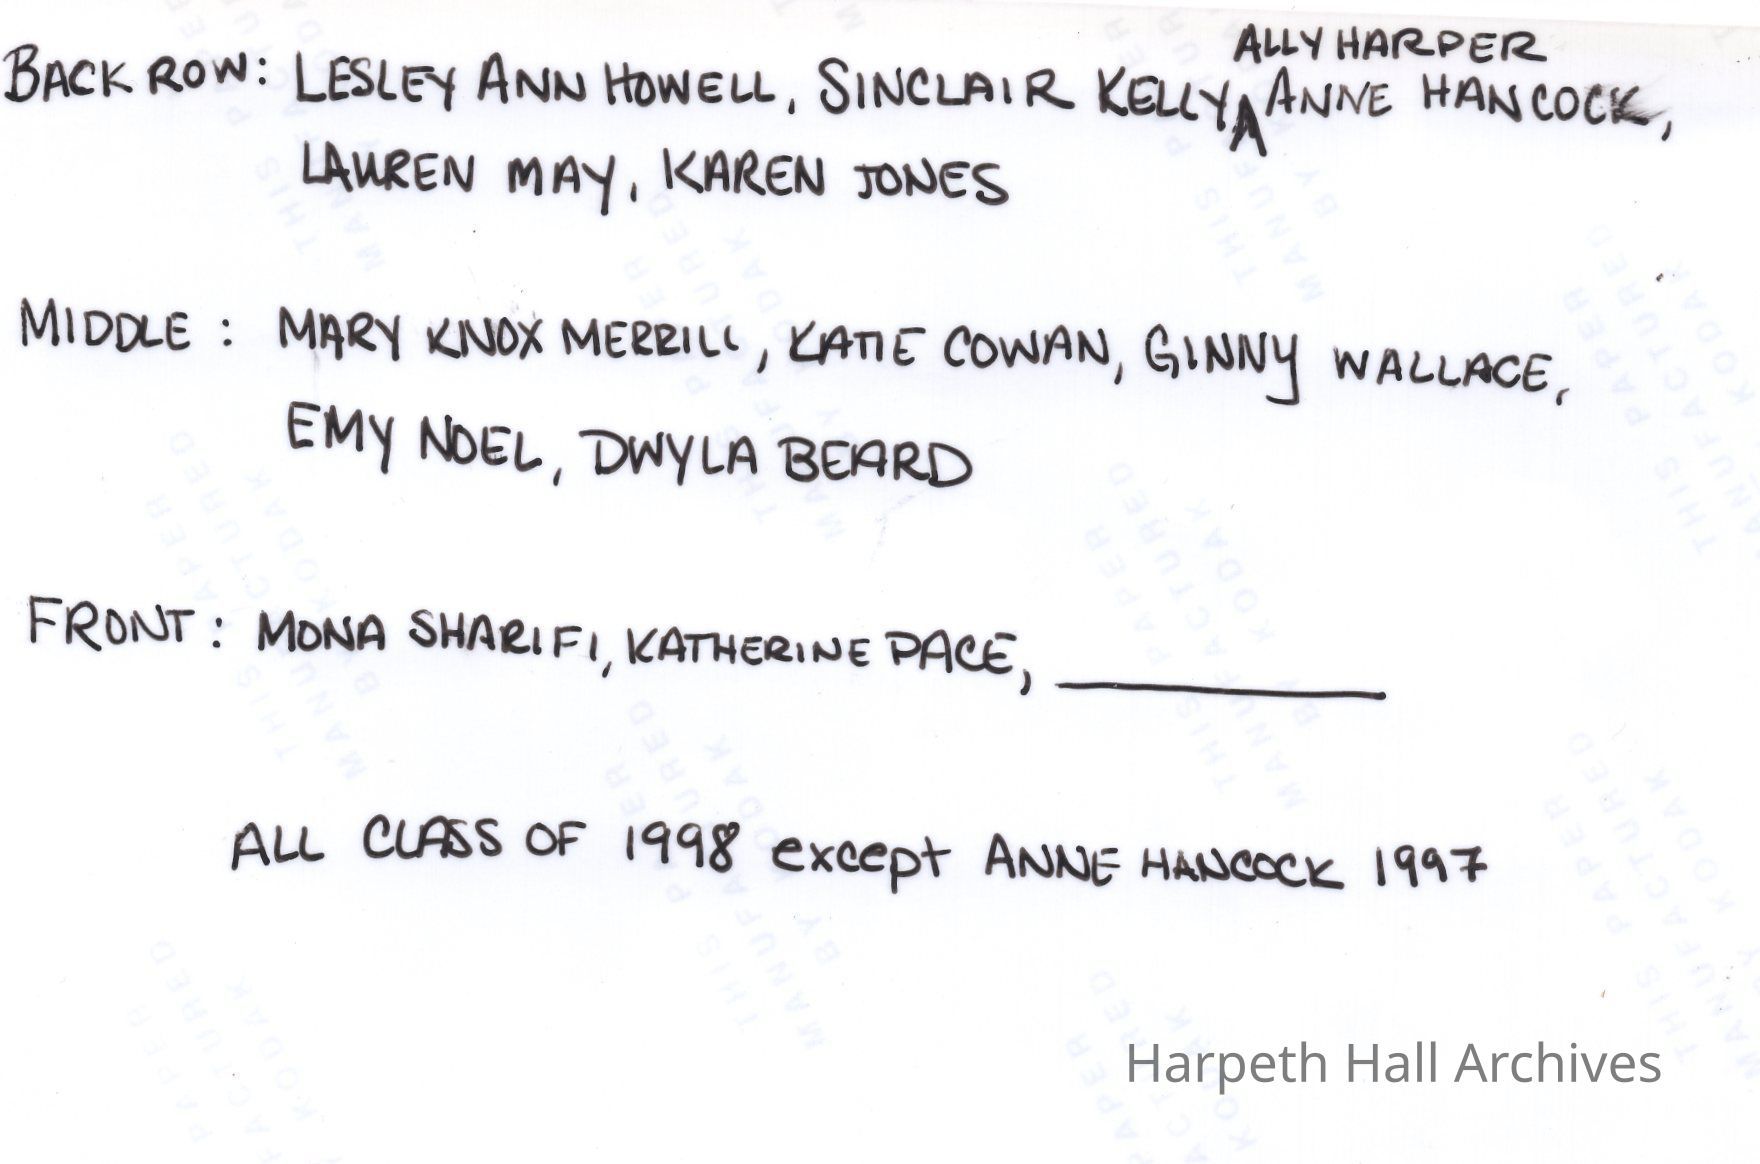 ALLY HARPER
BACK ROW: LESLEY ANN HOWELL, SINCLAIR KELLY ^ ANNE HANCOCK,
LAUREN MAY, KAREN JONES
MIDDLE: MARY KNOX MERRILL, KATIE COWAN, GINNY WALLACE,
EMY NOEL, DWYLA BEARD
FRONT: MONA SHARIFI, KATHERINE PACE, __________
ALL CLASS OF 1998 except ANNE HANCOCK 1997
Harpeth Hall Archives
THIS PAPER
MANUFACTURED
BY KODAK